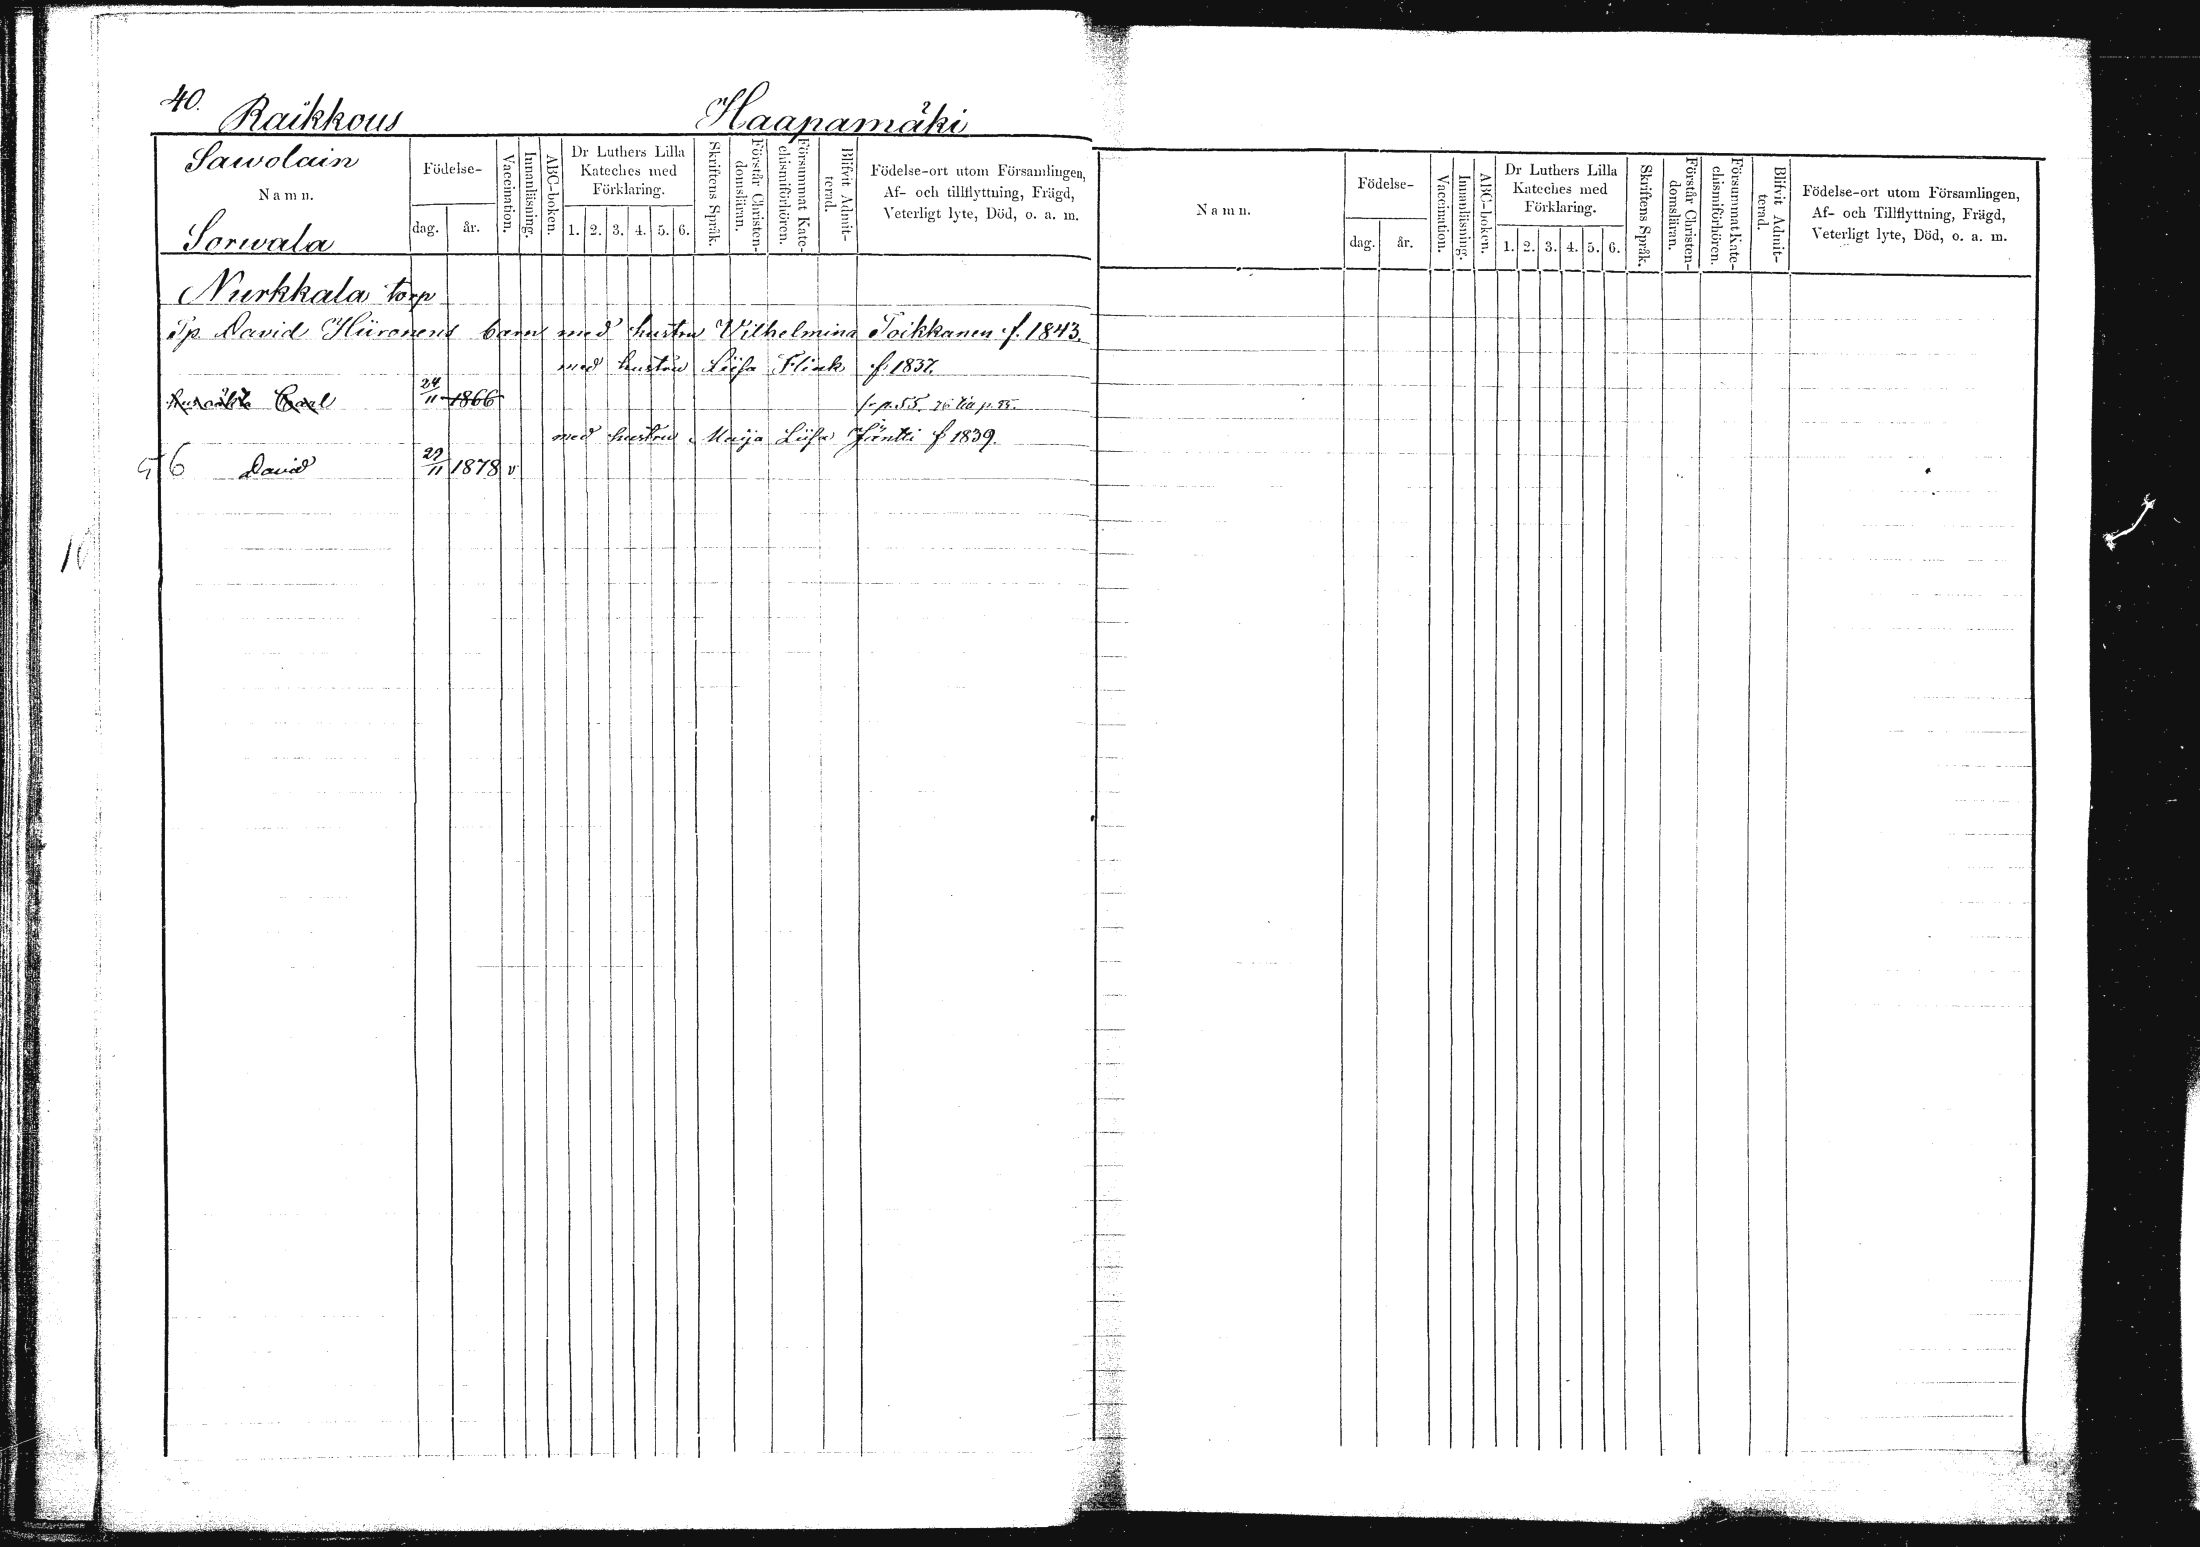 40.
Raikkous Haapamäki
Sawolain
Namn.
Sorwala
Födelse-
dag. år.
Vaccination.
Innanläsning.
ABC-boken.
Dr Luthers Lilla
Kateches med
Förklaring.
1. 2. 3. 4. 5. 6.
Skriftens Språk.
Förstår Christen-
domsläran.
Försummat Kate-
chismiförhören.
Blifvit Admit-
terad.
Födelse-ort utom Församlingen,
Af- och tillflyttning, Frägd,
Veterligt lyte, Död, o. a. m.
Nurkkala torp
Tp. David Hiironens barn med hustru Vilhelmina Toikkanen f. 1843.
med hustru Liisa Flink f 1837.
Carl 24/11 1866 fr p. 55. 76 till p. 55.
med hustru Maija Liisa Jäntti f 1839.
56 David 29/11 1878 v
10
Namn.
Födelse-
dag. år.
Vaccination.
Innanläsning.
ABC-boken.
Dr Luthers Lilla
Kateches med
Förklaring.
1. 2. 3. 4. 5. 6.
Skriftens Språk.
Förstår Christen-
domsläran.
Försummat Kate-
chismiförhören.
Blifvit Admit-
terad.
Födelse-ort utom Församlingen,
Af- och Tillflyttning, Frägd,
Veterligt lyte, Död, o. a. m.